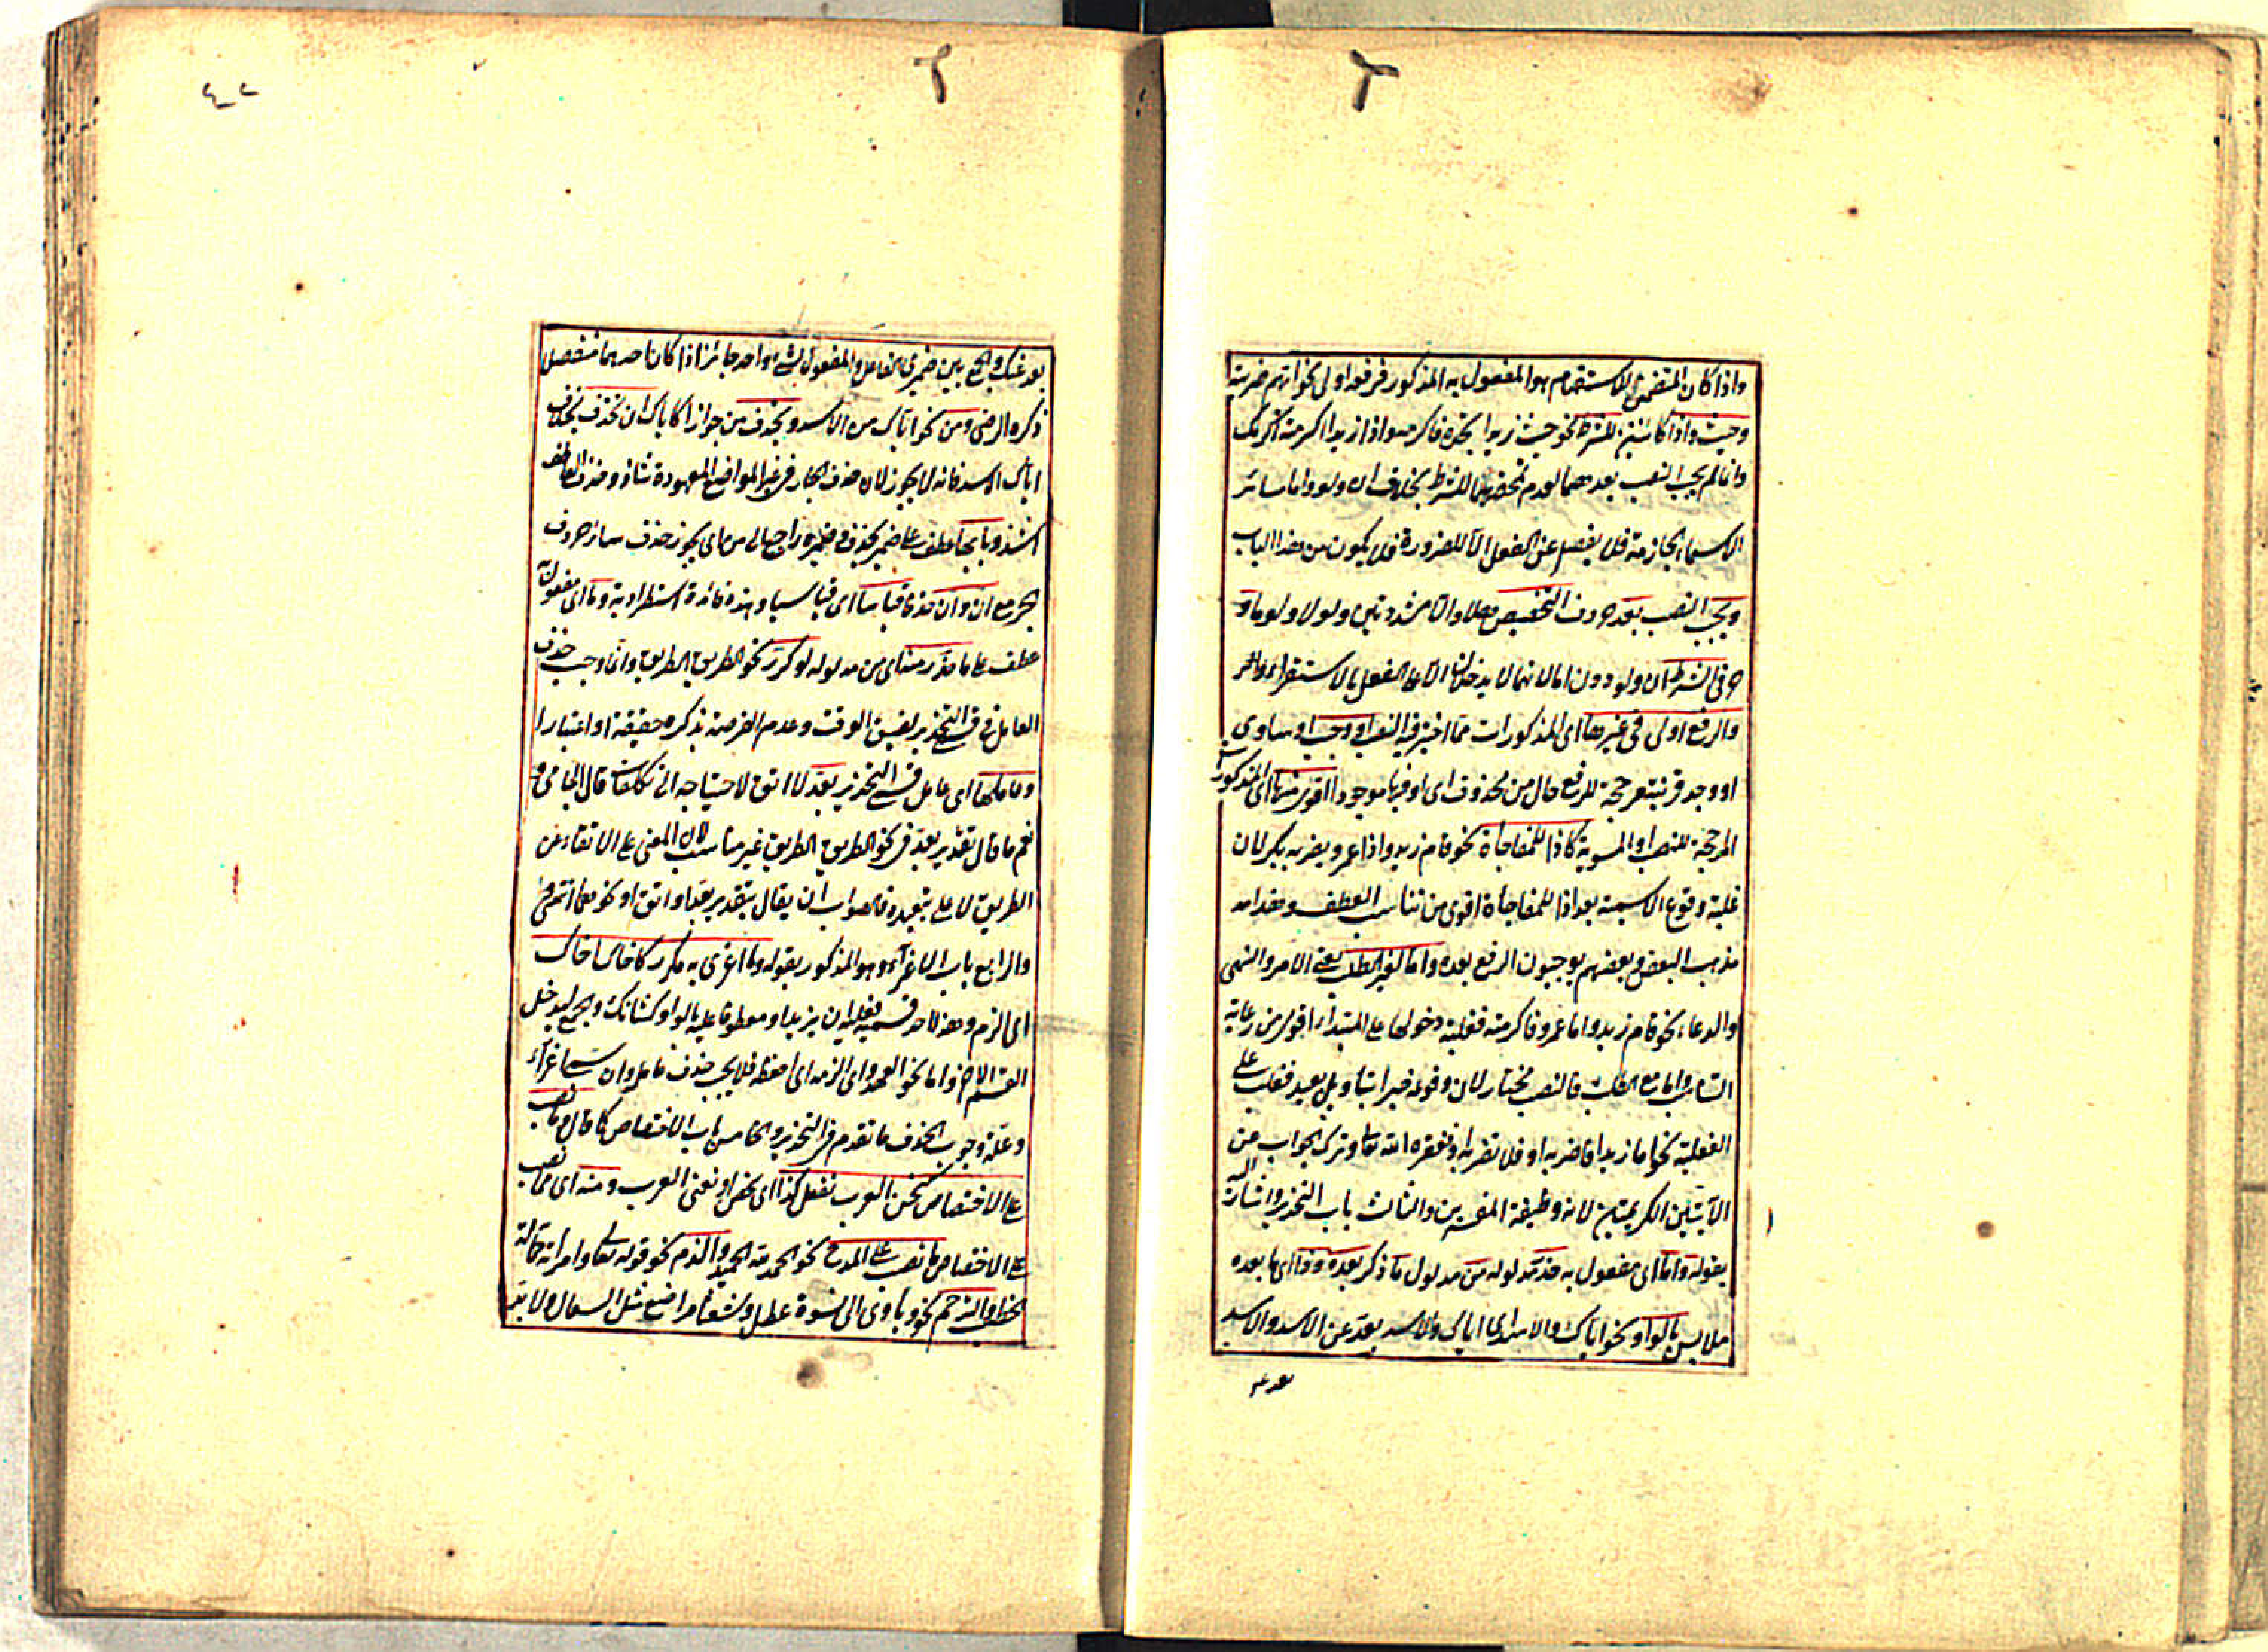 واذا كان المتضمن للاستفهام هو المفعول به المذكور فرفعه اولى نحو ايهم ضربته
وحيث واذا كائنتين للشرط نحو حيث زيدا تجده فاكرمه واذا زيدا اكرمته اكرمك
وانما لم يجب النصب بعدهما لعدم تمحضهما للشرط بخلاف ان ولو واما سائر
الاسماء الجازمة فلا يفصل عن الفعل الا للضرورة فلا يكون من هذا الباب
ويجب النصب بعد حروف التحضيض هلا والا مشددتين ولولا ولوما و
حرفي الشرط ان ولو دون اما لانهما لا يدخلان الا على الفعل بالاستقراء
والرفع اولى في غيرها اى المذكورات مما اختير فيه النصب او وجب او ساوى
او وجد قرينة مرجحة للرفع حال من محذوف اى او فيها موجودا اقوى منها اى المذكورات
المرجحة للنصب او المسوية كاذا للمفاجاة نحو قام زيد واذا عمرو يضربه بكر لان
غلبة وقوع الاسمية بعد اذا للمفاجاة اقوى من تناسب العطف وهذا
مذهب البعض وبعضهم يوجبون الرفع بعده واما لغير الطلب يعني الامر والنهى
والدعاء نحو قام زيد واما عمرو فاكرمته فغلبة دخولها على المبتداء اقوى من رعاية
التناسب واما مع الطلب فالنصب مختار لان وقوعه خبرا بتاويل بعيد فغلب على
الفعلية نحو اما زيدا فاضربه او فلا تضربه او فغفره الله تعالى وترك الجواب عن
الآيتين الكريمتين لانه وظيفة المفسرين والثالث باب التحذير واشار اليه
بقوله واما اى مفعول به حذر مدلوله من مدلول ما ذكر بعده وذا اى ما بعده
ملابس بالواو نحو اياك والاسد اى اياك والاسد بعد عن الاسد والاسد
بعد عنك والجمع بين ضميرى الفاعل والمفعول لشىء واحد جائز اذا كان احدهما منفصلا
ذكره الرضى ومن نحو اياك من الاسد وبحذف من جوازا كاياك ان تحذف بخلاف
اياك الاسد فانه لا يجوز لان حذف الجار في غير المواضع المعهودة شاذ وحذف العاطف
اشذ وبابها عطف على ضمير بحذف وضميره راجع الى من اى يجوز حذف سائر حروف
الجر مع ان وان حذفا قياسا اى قياسيا وهذه فائدة استطرادية وما اى مفعول به
عطف على ما حذر منه اى من مدلوله لو كرر نحو الطريق الطريق وانما وجب حذف
العامل في قسمى التحذير لضيق الوقت وعدم الفرصة بذكره حقيقة او اعتبارا
وعاملها اى عامل قسمى التحذير بعد لا اتق لاحتياجه الى تكلفات قال الجامى
نعم ما قال تقدير بعد في نحو الطريق الطريق غير مناسب لان المعنى على الاتقاء عن
الطريق لا على تبعيده فالصواب ان يقال بتقدير بعد او اتق او نحوهما انتهى
والرابع باب الاغراء وهو المذكور بقوله وما اغرى به مكرر كاخاك اخاك
اى الزم وهذا احد قسميه فعليه ان يزيد او معطوفا عليه بالواو كشانك والحج ليدخل
القسم الاخر واما نحو العهد اى الزمه اى احفظه فلا يجب حذف عامله وان سمى اغراء
وعلة وجوب الحذف ما تقدم في التحذير والخامس باب الاختصاص كما قال وما نصب
على الاختصاص كنحن العرب نفعل كذا اى نخص او نعنى العرب ومنه اى مما نصب
على الاختصاص ما نصب على المدح نحو الحمد لله الحميد والذم نحو قوله تعالى وامراته حمالة
الحطب والترحم نحو وياوى الى نسوة عطل وشعثا مراضيع مثل السعالى ولا بد
بعد عـ